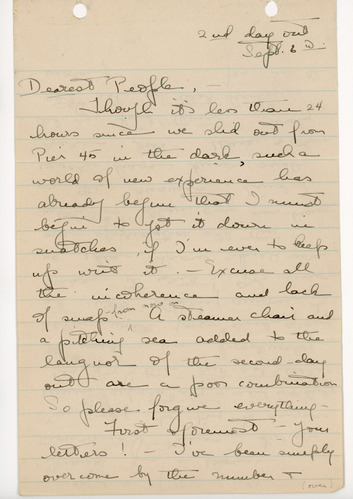 2nd day out
Sept. 6th
Dearest People, -
Though it's less than 24
hours since we slid out from
Pier 45 in the dark, such a
world of new experience has
already begun that I must
begin to jot it down in
snatches, if I'm ever to keep
up with it. - Excuse all
the incoherence and lack
of snap - from now on
A steamer chair and
a pitching sea added to the
languor of the second-day
out are a poor combination
So please forgive everything -
First & foremost - your
letters! - I've been simply
overcome by the number +
(over)